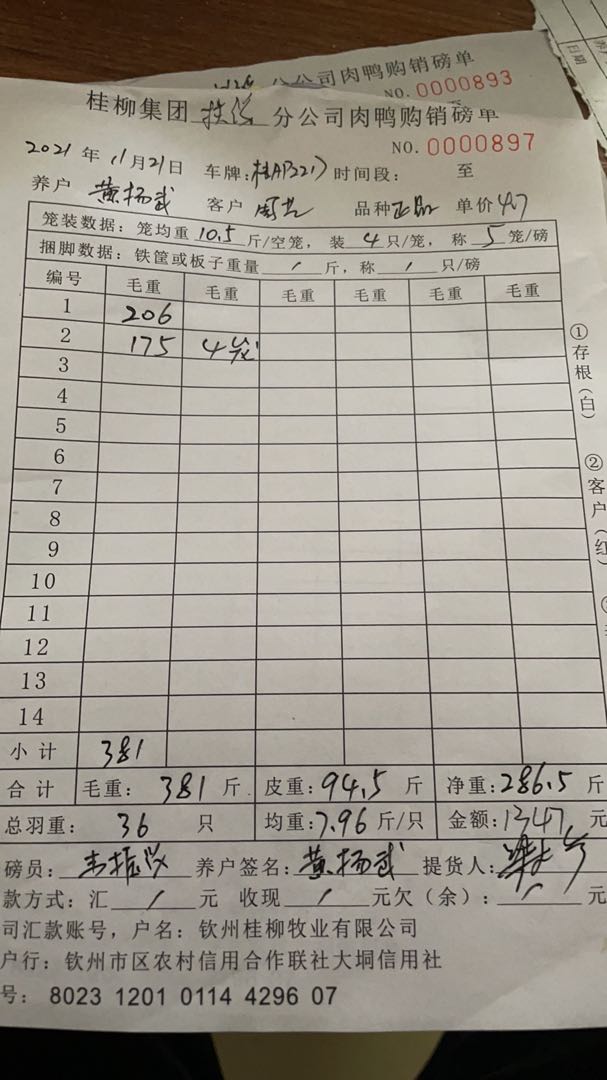 分公司肉鸭购销磅单
NO. 0000893
日期
桂柳集团 分公司肉鸭购销磅单
NO. 0000897
2021年11月21日 车牌: 时间段: 至
养户 黄扬武 客户 品种正品 单价4.7
笼装数据: 笼均重 10.5 斤/空笼, 装 4 只/笼, 称 5 笼/磅
捆脚数据: 铁筐或板子重量 / 斤, 称 / 只/磅
编号 毛重 毛重 毛重 毛重 毛重 毛重
1 206
2 175 4笼
3
4
5
6
7
8
9
10
11
12
13
14
小计 381
合计 毛重: 381 斤 皮重: 94.5 斤 净重: 286.5 斤
总羽重: 36 只 均重: 7.96 斤/只 金额: 1347 元
磅员: 韦振 养户签名: 黄扬武 提货人:
款方式: 汇 / 元 收现 / 元欠(余): / 元
司汇款账号, 户名: 钦州桂柳牧业有限公司
户行: 钦州市区农村信用合作联社大垌信用社
号: 8023 1201 0114 4296 07
①存根(白)
②客户(红)